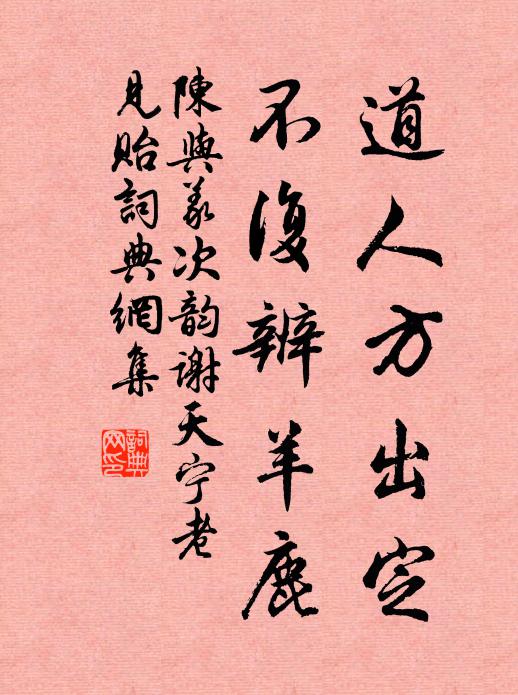 道人方出定
不復辨羊鹿
陳與義次韵謝天宁老
見貽詞典網集
詞典网印